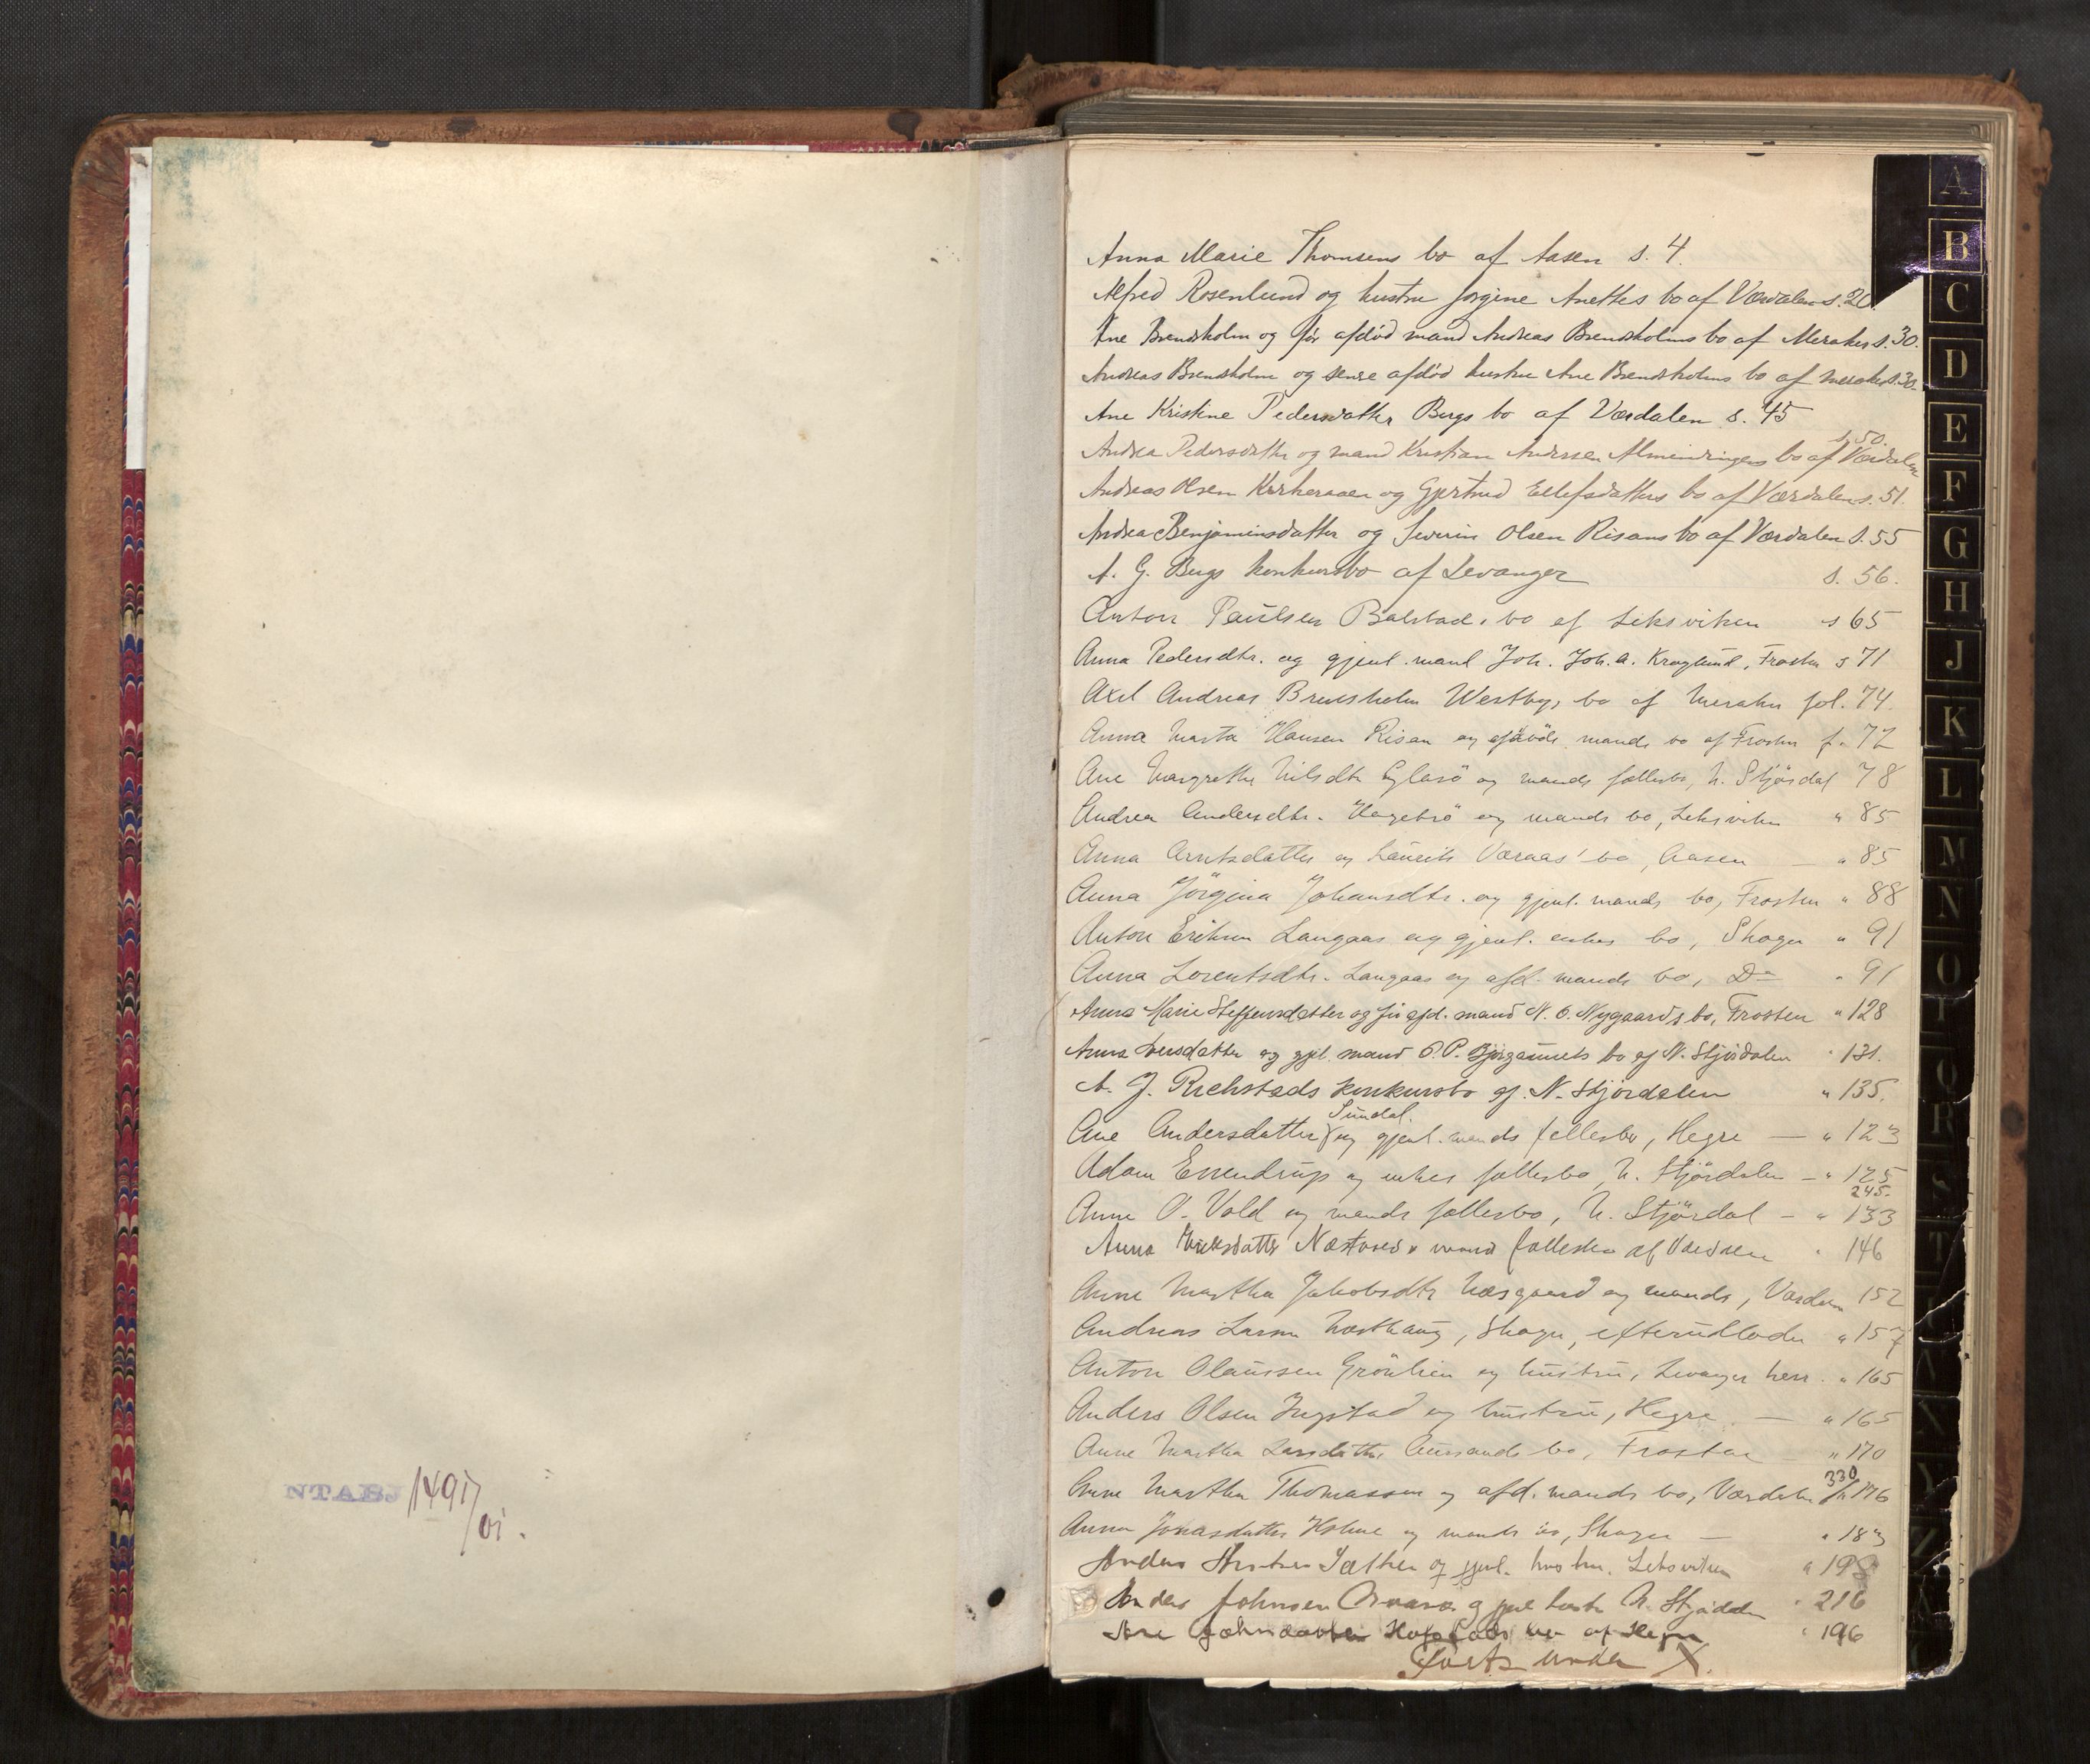 NTABJ 1491/01.
Anna Marie Thomsens bo af Aasen s. 4.
Alfred Rosenlund og hustru Jorgine Anettes bo af Værdalen s. 20.
Ane Brendsholm og før afdød mand Andreas Brendsholms bo af Meraker s. 30.
Andreas Brendsholm og senere afdød hustru Ane Brendsholms bo af Meraker s. 30.
Ane Kristine Pedersdatter Bergs bo af Værdalen s. 45
s. 50.
Andrea Pedersdatter og mand Kristian Andersen Almenningens bo af Værdalen
Andreas Olsen og Gjertrud Ellefsdatters bo af Værdalen s. 51.
Andrea Benjaminsdatter og Severin Olsen Risans bo af Værdalen s. 55
A. G. Bergs konkursbo af Levanger s. 56.
Anton Paulsen Balstads bo af Leksviken s 65
Anna Pedersdtr. og gjenl. mand Joh. Joh. A. Kroglund, Frosten s 71
Axel Andreas Brensholm Westbys bo af Meraker fol. 74.
Anna Marta Hansen Risan og afdøde mands bo af Frosten f. 72
Ane Margrethe Nilsdtr. og mands fællesbo, N. Stjørdal 78
Andrea Andersdtr. og mands bo, Leksviken " 85
Anna Arntsdatter og Laurits Væraas' bo, Aasen — " 85
Anna Jørgina Johansdtr. og gjenl. mands bo, Frosten " 88
Anton Eriksen Langaas og gjenl. enkes bo, Skogn " 91
Anna Lorentsdtr. Langaas og afd. mands bo, Do " 91
Anna Marie Steffensdatter og før afd. mand N. O. Nygaards bo, Frosten " 128
Anna Iversdatter og gjl. mand O. P. bo af N. Stjørdalen " 131.
A. J. Richstads konkursbo af N. Stjørdalen " 135.
Sundal.
Ane Andersdatter og gjenl. mands fællesbo, Hegre — " 123
Adam Essendrup og enkes fællesbo, N. Stjørdalen — " 125
245.
Anne O. Vold og mands fællesbo, N. Stjørdal — " 133
Anna Eriksdatter Næstvold & mand fællesbo af Værdalen " 146
Anne Martha Jakobsdtr Næsgaard og mands, Værdalen 152
Andreas Larsen, Skogn, efterudlodn " 157
Anton Olaussen Grønlien og hustru, Levanger herr. " 165
Anders Olsen Ingstad og hustru, Hegre — " 165
Anne Martha Larsdatter Aursands bo, Frosta " 170
330
Anne Martha Thomassen og afd. mands bo, Værdalen 176
Anna Jonasdatter Holme og mands bo, Skogn — " 183
Anders Sæther og gjenl. hustru. Leksviken " 198
Anders Johnsen og gjenl hustru N. Stjørdalen " 216
Ane Johnsdatter bo af Hegre " 196
Forts under X.
A
B
C
D
E
F
G
H
J
K
L
M
N
O
P
Q
R
S
T